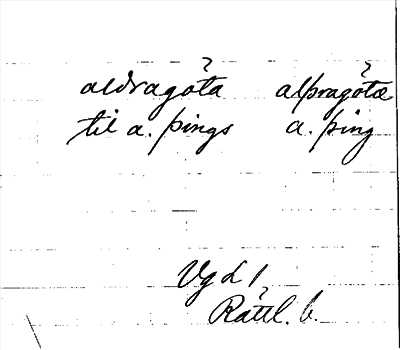 aldragøta alþragøtæ
til a. þings a. þing
Vg L 1
Rättl. b.